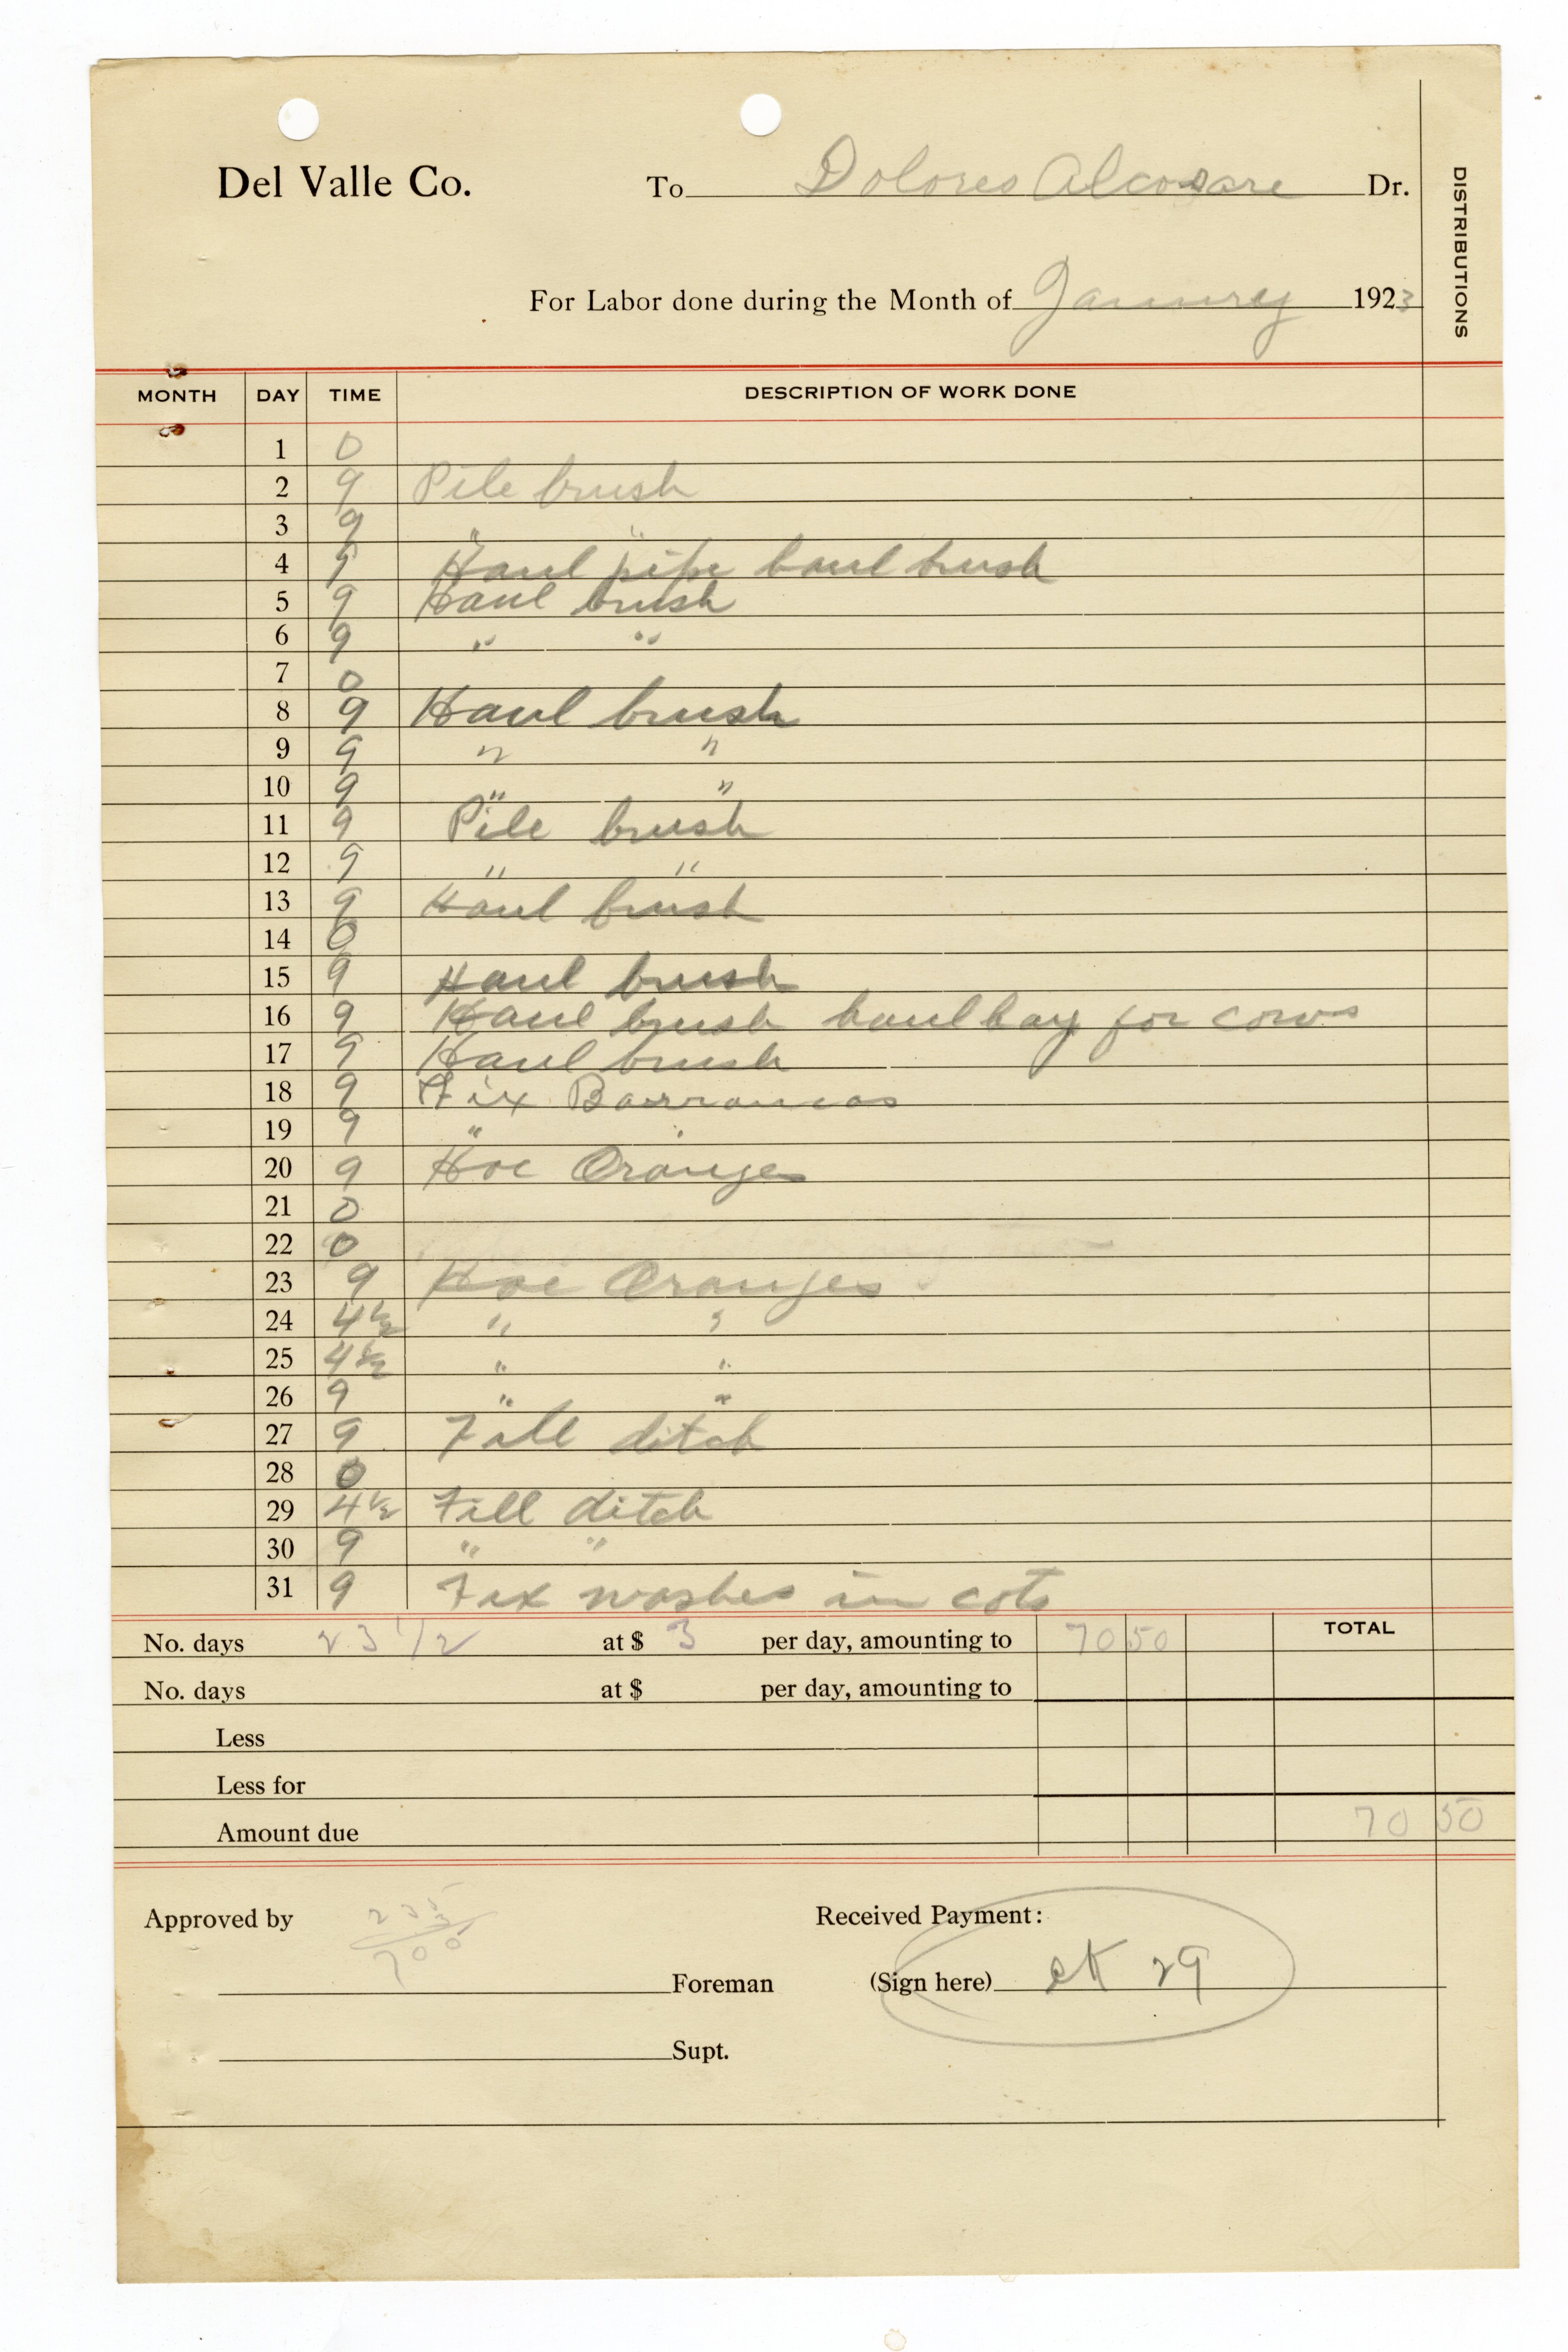 Del Valle Co. To Dolores Alcosare Dr.
DISTRIBUTIONS
For Labor done during the Month of Januarey 1923
MONTH DAY TIME DESCRIPTION OF WORK DONE
1 0
2 9 Pile brush
3 9 " "
4 9 Haul pipe haul brush
5 9 Haul brush
6 9 " "
7 0
8 9 Haul brush
9 9 " "
10 9 " "
11 9 Pile brush
12 9 " "
13 9 Haul brush
14 0
15 9 Haul brush
16 9 Haul brush haul hay for cows
17 9 Haul brush
18 9 Fix Barrancas
19 9 "
20 9 Hoe Oranges
21 0
22 0
23 9 Hoe Oranges
24 4 1/2 " "
25 4 1/2 " "
26 9 " "
27 9 Fill ditch
28 0
29 4 1/2 Fill ditch
30 9 " "
31 9 Fix washes in cots
No. days 23 1/2 at $ 3 per day, amounting to 70 50 TOTAL
No. days at $ per day, amounting to
Less
Less for
Amount due 70 50
Approved by 235 Received Payment:
3
Foreman (Sign here) ck 29
Supt.